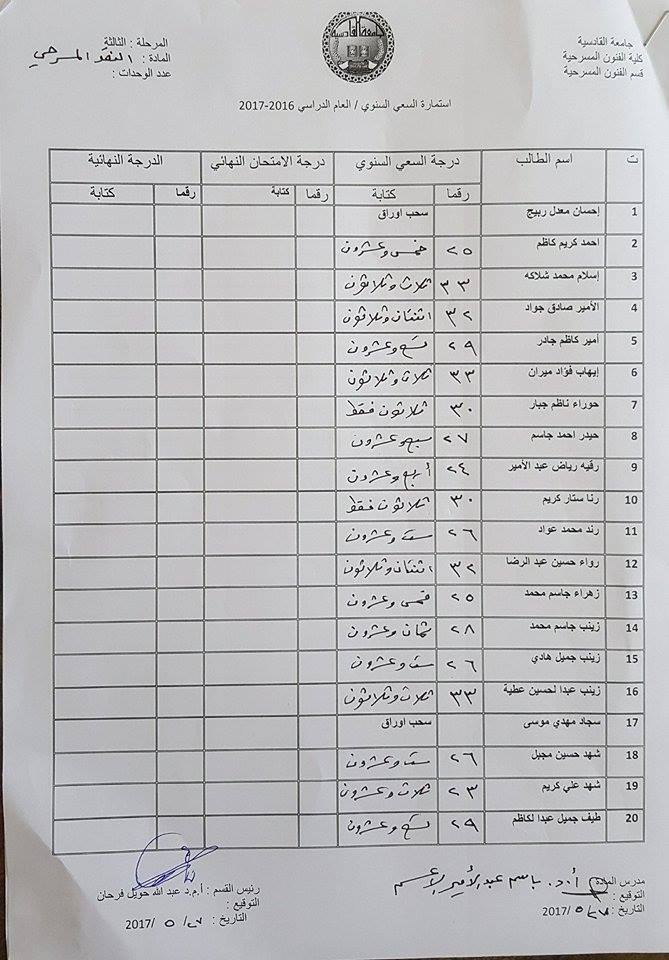 جامعة القادسية
كلية الفنون المسرحية
قسم الفنون المسرحية
جامعة القادسية
المرحلة : الثالثة
المادة : النقد المسرحي
عدد الوحدات :
استمارة السعي السنوي / العام الدراسي 2016-2017
ت اسم الطالب درجة السعي السنوي درجة الامتحان النهائي الدرجة النهائية
رقما كتابة رقما كتابة رقما كتابة
1 إحسان معدل ربيج سحب اوراق
2 احمد كريم كاظم ٢٥ خمس وعشرون
3 إسلام محمد شلاكه ٣٣ ثلاث وثلاثون
4 الأمير صادق جواد ٣٢ اثنتان وثلاثون
5 أمير كاظم جادر ٢٩ تسع وعشرون
6 إيهاب فؤاد ميران ٣٣ ثلاث وثلاثون
7 حوراء ناظم جبار ٣٠ ثلاثون فقط
8 حيدر احمد جاسم ٢٧ سبع وعشرون
9 رقيه رياض عبد الأمير ٢٤ أربع وعشرون
10 رنا ستار كريم ٣٠ ثلاثون فقط
11 رند محمد عواد ٢٦ ست وعشرون
12 رواء حسين عبد الرضا ٣٢ اثنتان وثلاثون
13 زهراء جاسم محمد ٢٥ خمس وعشرون
14 زينب جاسم محمد ٢٨ ثمان وعشرون
15 زينب جميل هادي ٢٦ ست وعشرون
16 زينب عبدا لحسين عطية ٣٣ ثلاث وثلاثون
17 سجاد مهدي موسى سحب اوراق
18 شهد حسين مجبل ٢٦ ست وعشرون
19 شهد علي كريم ٢٣ ثلاث وعشرون
20 طيف جميل عبدا لكاظم ٢٩ تسع وعشرون
مدرس المادة أ.د. باسم عبد الأمير الاعسم
التوقيع :
التاريخ : ٢٧/٥/ 2017
رئيس القسم : أ.م.د عبد الله حويل فرحان
التوقيع :
التاريخ : ٢٧/ ٥ /2017